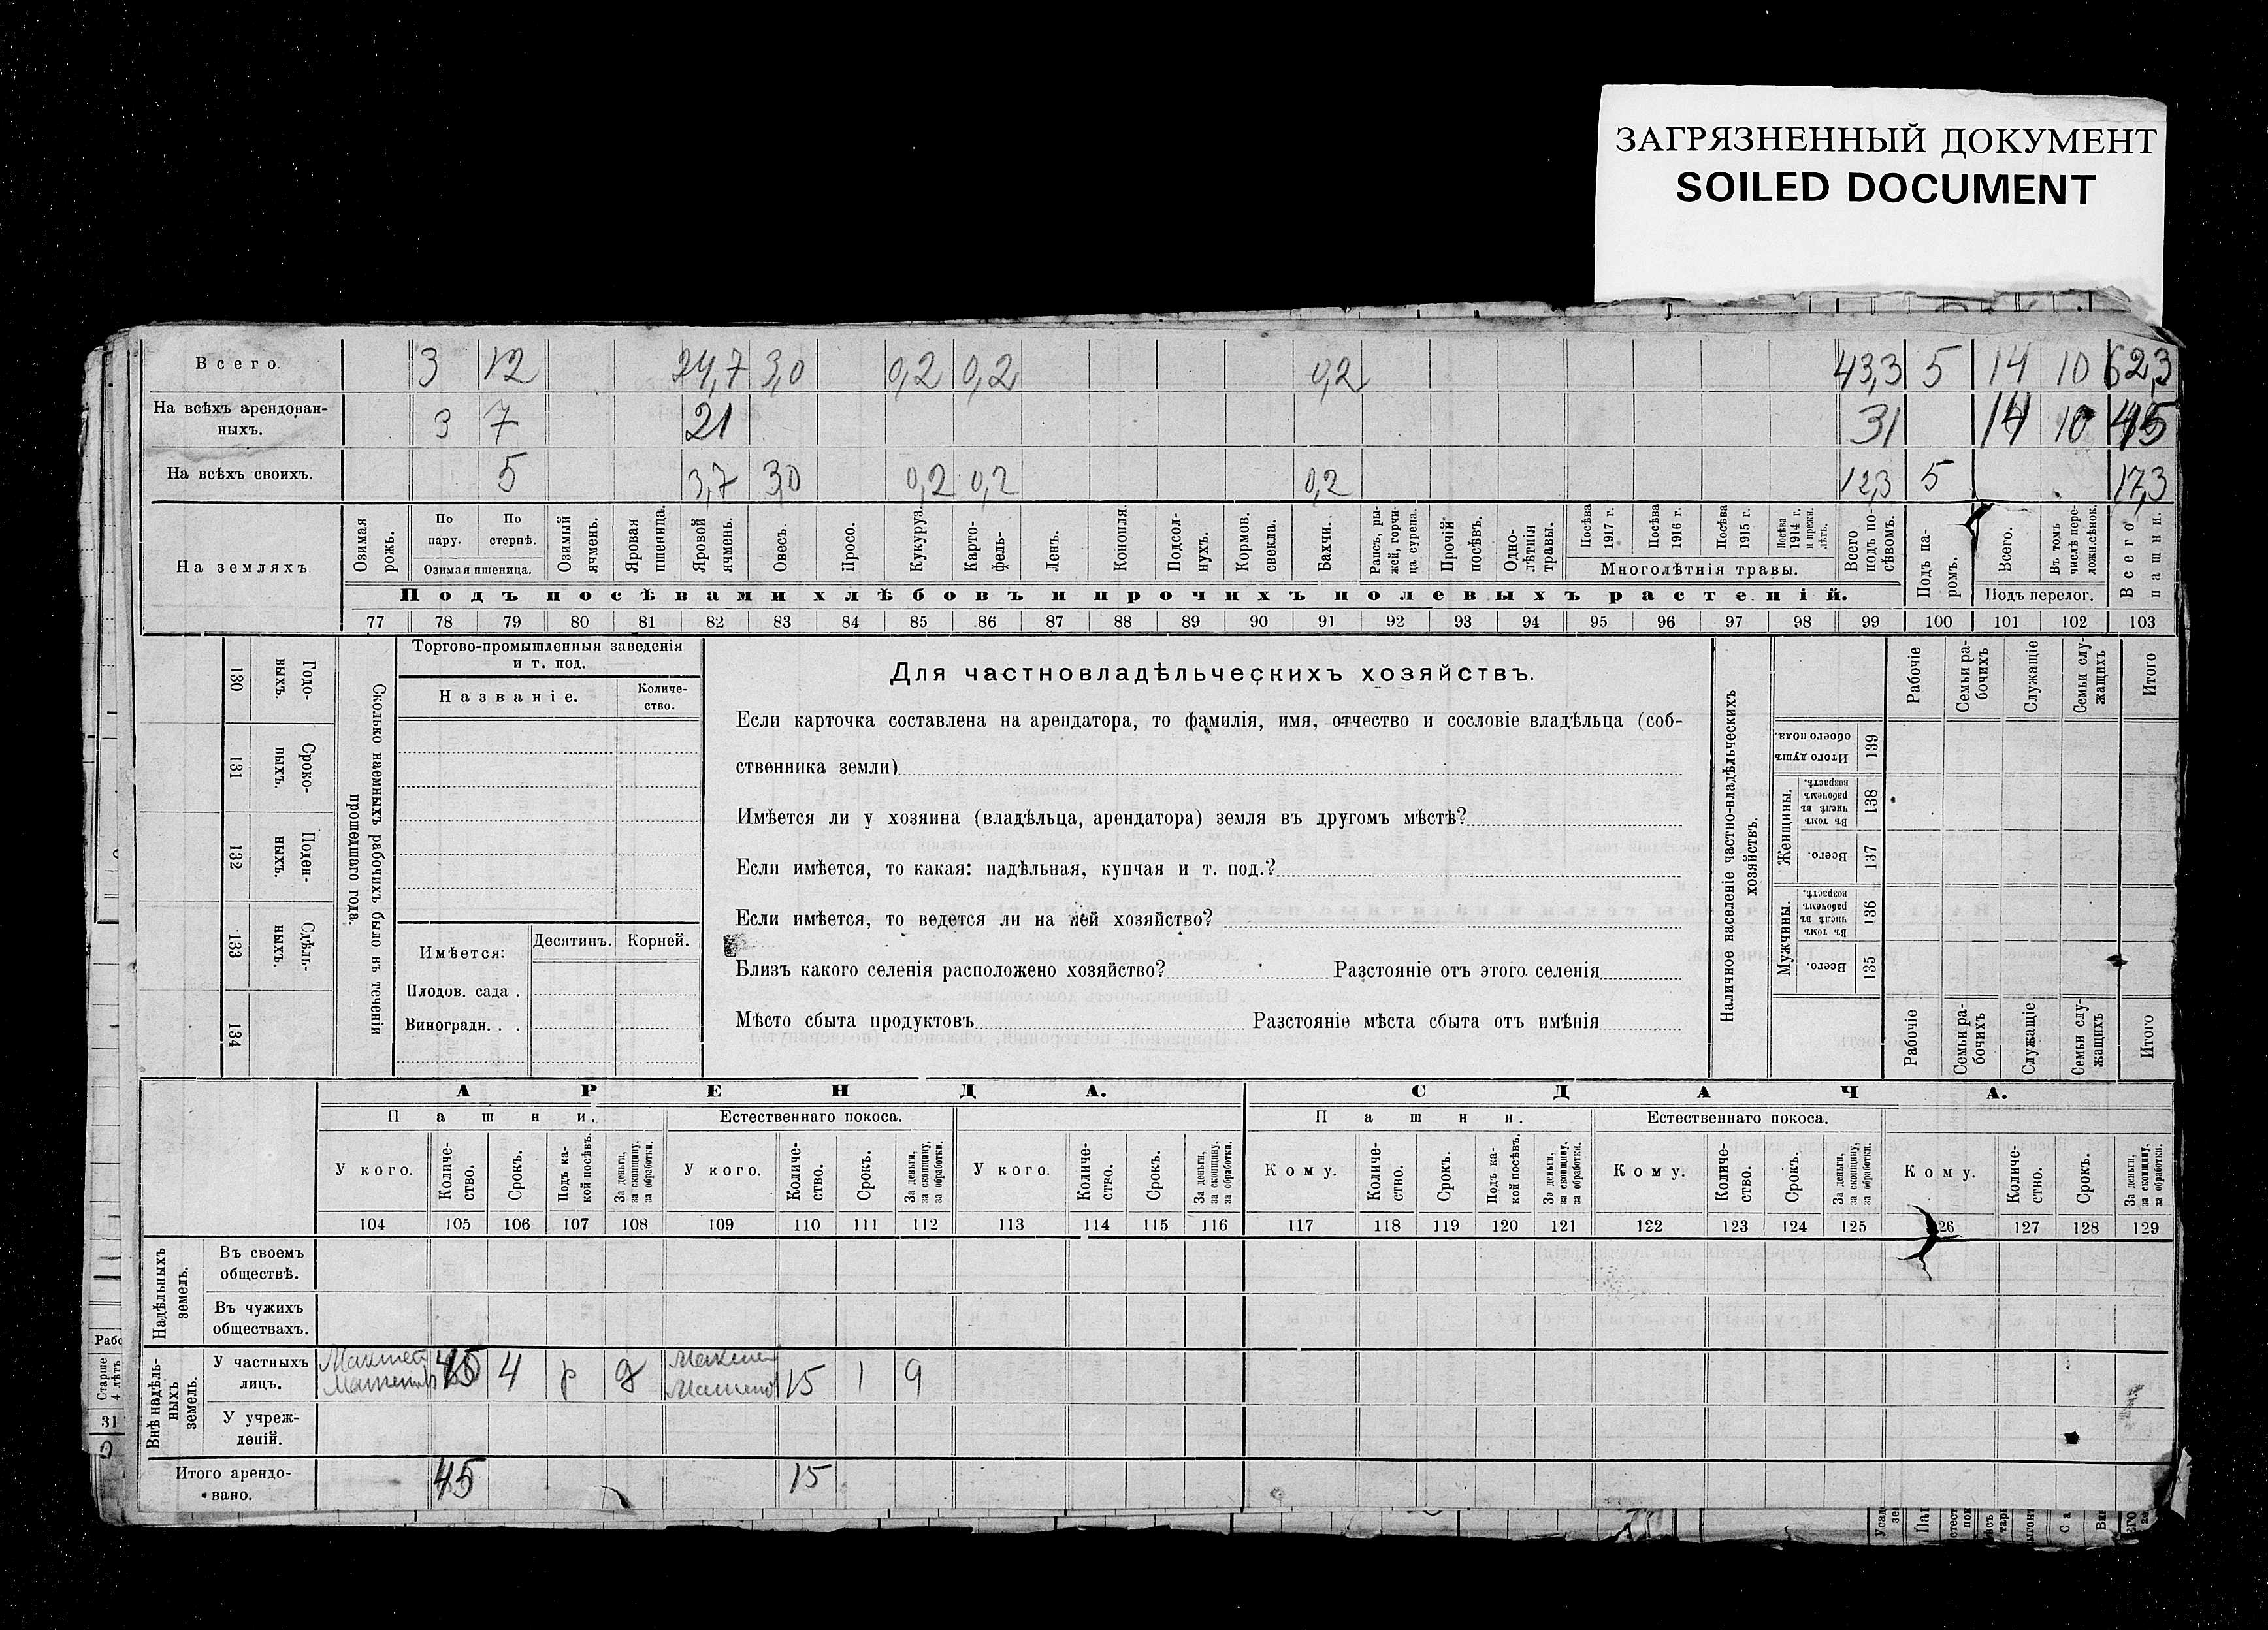 ЗАГРЯЗНЕННЫЙ ДОКУМЕНТ
SOILED DOCUMENT
Всего. 3 12 24,7 3,0 0,2 0,2 0,2 43,3 5 14 10 62,3
На всѣхъ арендован-
ныхъ. 3 7 21 31 14 10 45
На всѣхъ своихъ. 5 3,7 3,0 0,2 0,2 0,2 12,3 5 17,3
На земляхъ
Озимая рожь.
По пару.
По стернѣ.
Озимая пшеница.
Озимый ячмень.
Яровая пшеница.
Яровой ячмень.
Овесъ.
Просо.
Кукуруз.
Карто-
фель.
Ленъ.
Конопля
Подсол-
нухъ.
Кормов. свекла.
Бахчи.
Рапсъ, ры-
жей, горчи-
ца сурепа.
Прочій посѣвъ.
Одно-
лѣтнія травы.
Посѣва 1917 г.
Посѣва 1916 г.
Посѣва 1915 г.
Посѣва 1914 г. и прежн. лѣтъ.
Многолѣтнія травы.
Всего подъ по-
сѣвомъ.
Подъ па-
ромъ.
Всего.
Въ томъ числѣ пере-
ложн.сѣнок.
Подъ перелог.
Всего пашни.
Подъ посѣвами хлѣбовъ и прочихъ полевыхъ растеній.
77 78 79 80 81 82 83 84 85 86 87 88 89 90 91 92 93 94 95 96 97 98 99 100 101 102 103
130 Годо-
выхъ.
131 Сроко-
выхъ.
132 Поден-
ныхъ.
133 Сдѣль-
ныхъ.
134
Сколько наемныхъ рабочихъ было въ теченіи
прошедшаго года.
Торгово-промышленныя заведенія
и т. под.
Названіе.
Количе-
ство.
Имѣется:
Десятинъ.
Корней.
Плодов. сада .
Виноградн. . .
Для частновладѣльческихъ хозяйствъ.
Если карточка составлена на арендатора, то фамилія, имя, отчество и сословіе владѣльца (соб-
ственника земли)
Имѣется ли у хозяина (владѣльца, арендатора) земля въ другомъ мѣстѣ?
Если имѣется, то какая: надѣльная, купчая и т. под.?
Если имѣется, то ведется ли на ней хозяйство?
Близъ какого селенія расположено хозяйство? Разстояніе отъ этого селенія
Мѣсто сбыта продуктовъ Разстояніе мѣста сбыта отъ имѣнія
Наличное населеніе частно-владѣльческихъ
хозяйствъ.
Рабочіе
Семьи ра-
бочихъ
Служащіе
Семьи слу-
жащихъ
Итого
Итого душъ обоего пола. 139
Женщины.
Въ томъ числѣ въ рабочемъ возрастѣ. 138
Всего. 137
Мужчины.
Въ томъ числѣ въ рабочемъ возрастѣ. 136
Всего. 135
Рабочіе
Семьи ра-
бочихъ
Служащіе
Семьи слу-
жащихъ
Итого
АРЕНДА. СДАЧА.
Пашни. Естественнаго покоса. Пашни. Естественнаго покоса.
У кого.
Количе-
ство.
Срокъ.
Подъ ка-
кой посѣвъ.
За деньги,
за скопщину,
за обработки.
У кого.
Количе-
ство.
Срокъ.
За деньги,
за скопщину,
за обработки.
У кого.
Количе-
ство.
Срокъ.
За деньги,
за скопщину,
за обработки.
Кому.
Количе-
ство.
Срокъ.
Подъ ка-
кой посѣвъ.
За деньги,
за скопщину,
за обработки.
Кому.
Количе-
ство.
Срокъ.
За деньги,
за скопщину,
за обработки.
Кому.
Количе-
ство.
Срокъ.
За деньги,
за скопщину,
за обработки.
104 105 106 107 108 109 110 111 112 113 114 115 116 117 118 119 120 121 122 123 124 125 26 127 128 129
Надѣльныхъ
земель.
Въ своемъ
обществѣ.
Въ чужихъ
обществахъ.
Внѣ надѣль-
ныхъ
земель.
У частныхъ
лицъ. 45 4 р д 15 1 9
У учреж-
деній.
Итого арендо-
вано. 45 15
Рабо
Старше
4 лѣтъ
31
0